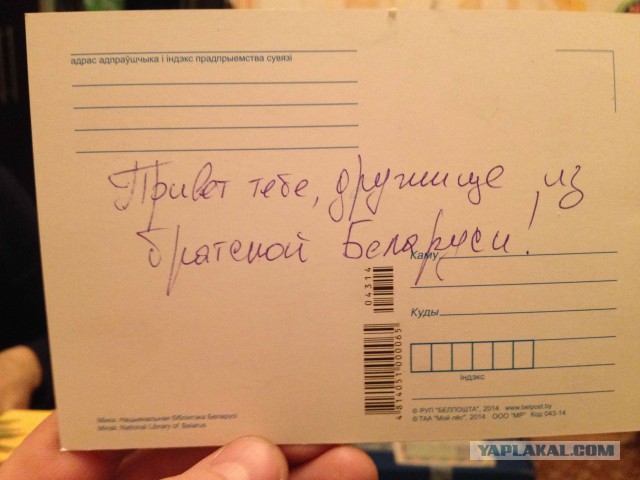 адрас адпраўшчыка і індэкс прадпрыемства сувязі
Привет тебе, дружище, из
братской Беларуси!
Каму
04314
Куды
індэкс
4 814051 000065
Мінск. Нацыянальная бібліятэка Беларусі
Minsk. National Library of Belarus
© РУП "БЕЛПОШТА", 2014 www.belpost.by
© ТАА "Мой лёс", 2014 ООО "МР" Код 043-14
YAPLAKAL.COM